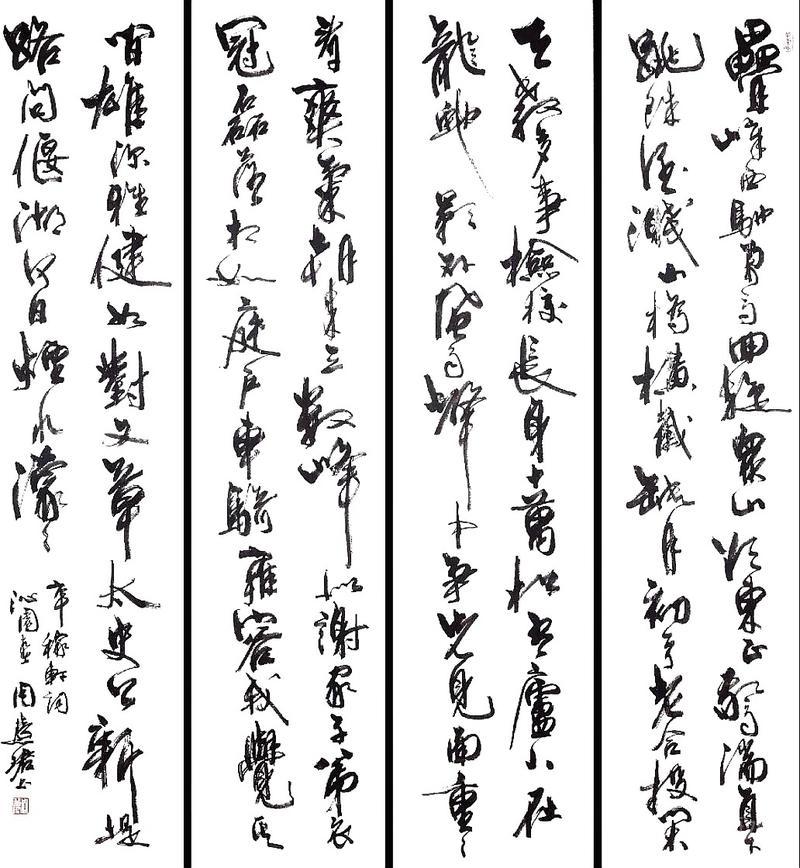 疊嶂西馳萬馬回旋衆山欲東正驚湍直下
跳珠倒濺小橋橫截缺月初弓老合投閑
天教多事檢校長身十萬松吾廬小在
龍虵影外風雨聲中爭先見面重重
看爽氣朝來三數峰似謝家子弟衣
冠磊落相如庭戶車騎雍容我覺其
間雄深雅健如對文章太史公新堤
路問偃湖何日煙水濛濛
辛稼軒詞
沁園春 周